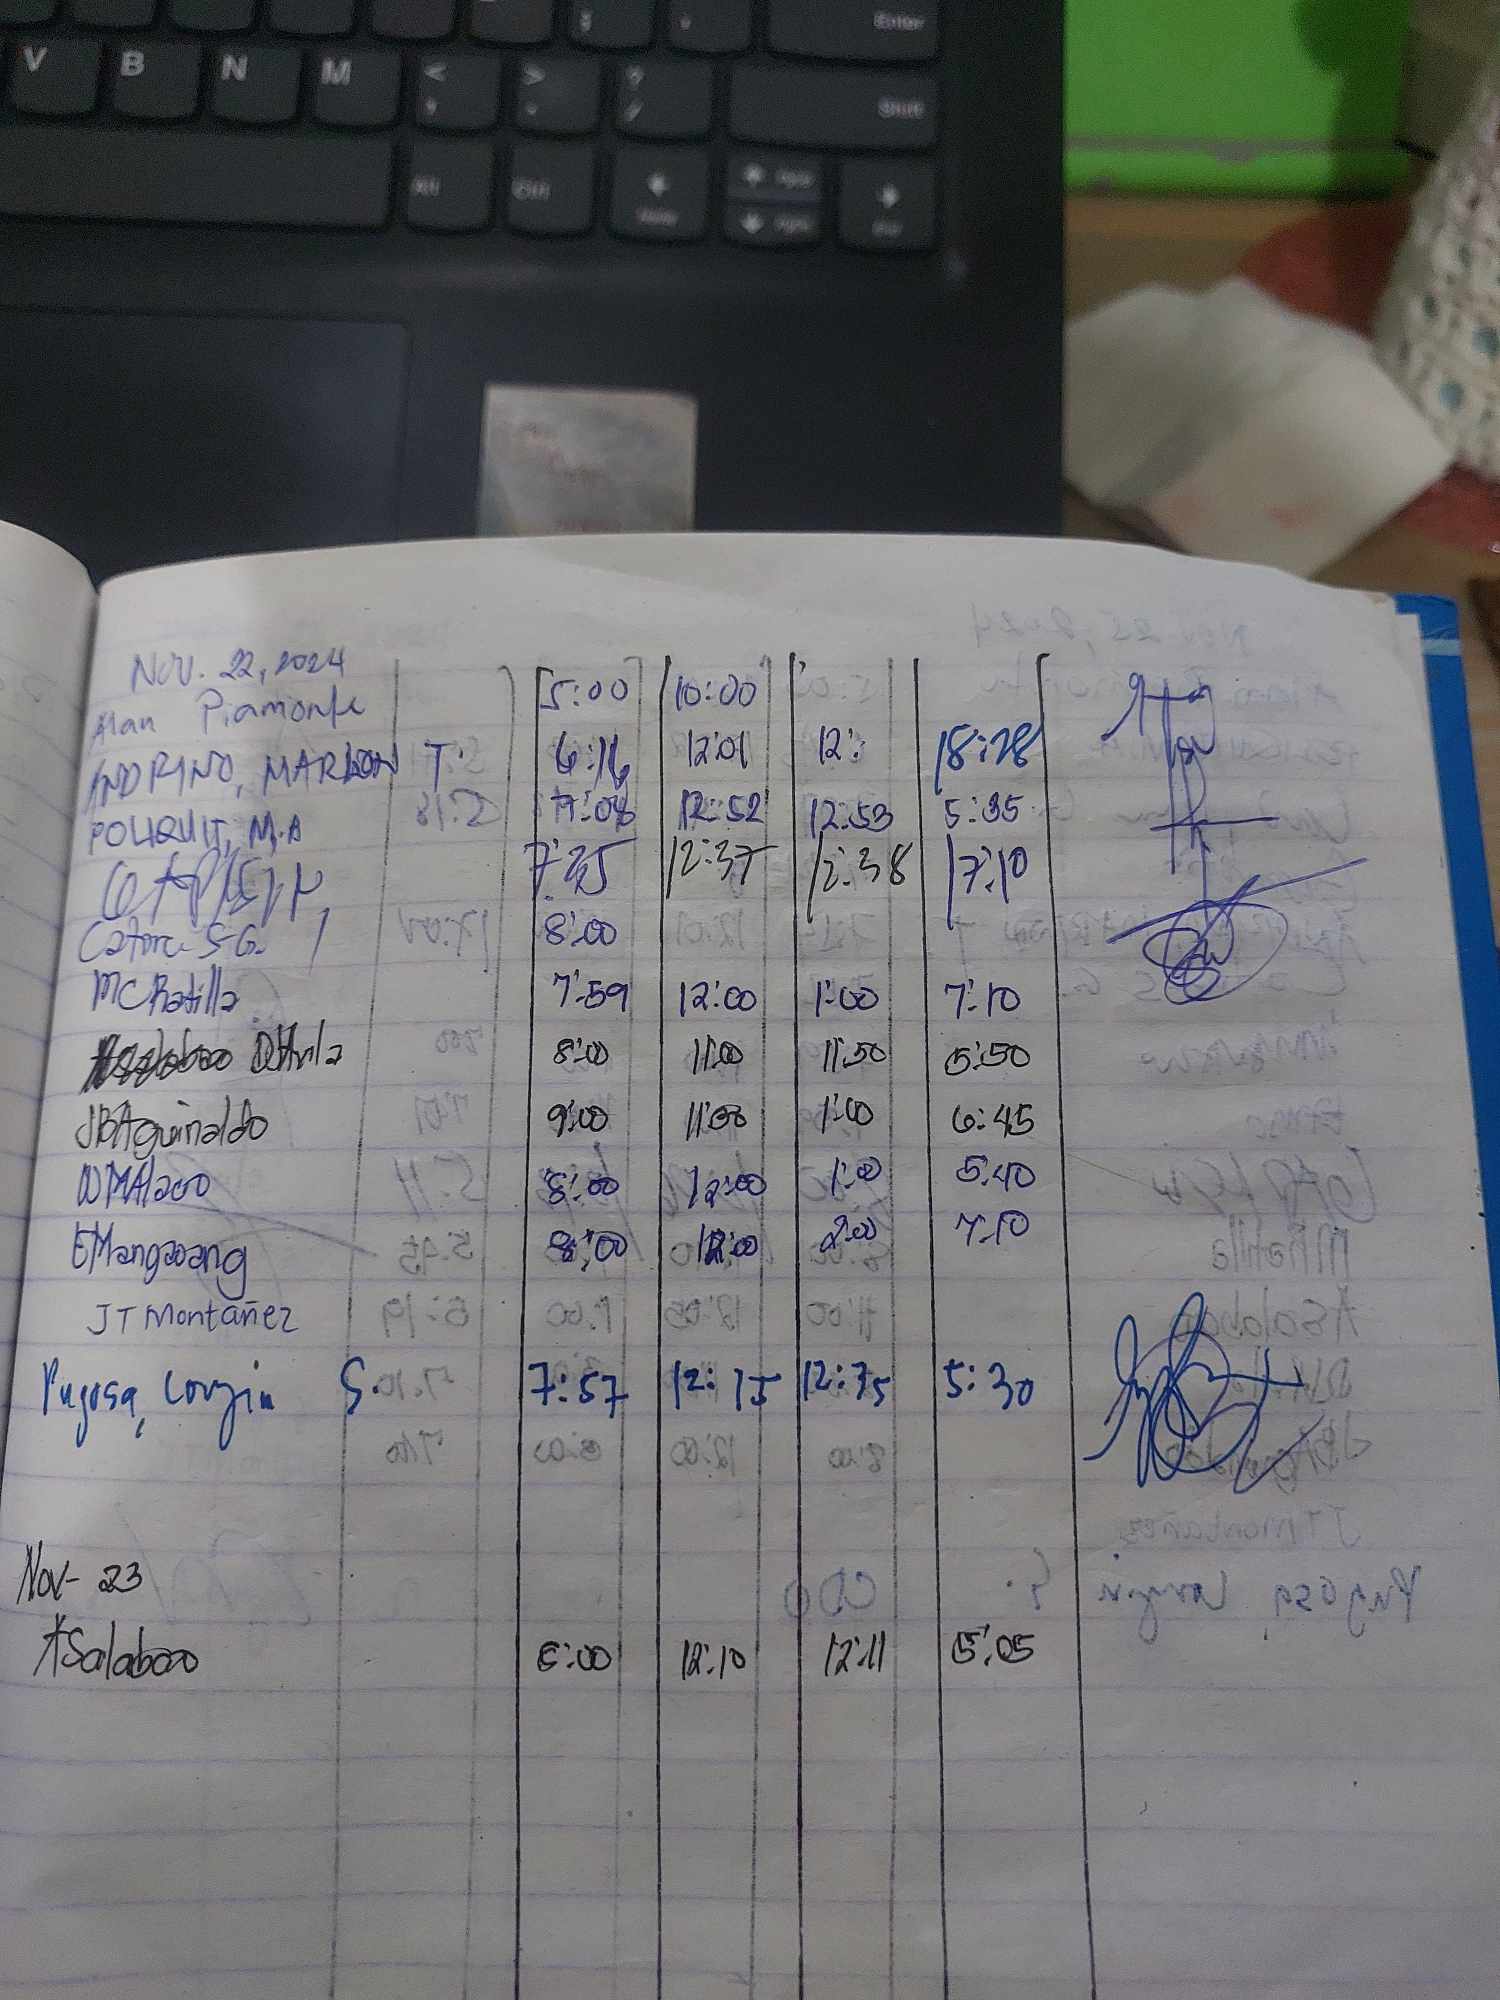 Enter
V B N M < , > . ? /
Shift
Alt Ctrl
Nov. 22, 2024
Alan Piamonte 5:00 10:00
INDRINO, MARLON T. 6:16 12:01 12: 18:28
POLIQUIT, M.A 7:08 12:52 12:53 5:35
7:35 12:37 12:38 17:10
S.G. 8:00
MCRatilla 7:59 12:00 1:00 7:10
8:00 11:00 11:50 5:50
JBAguinaldo 9:00 11:00 1:00 6:45
8:00 12:00 1:00 5:40
EMangaoang 8:00 12:00 2:00 7:10
JT Montañez
Pugosa, Lorgin S. 7:57 12:15 12:35 5:30
Nov- 23
ASalabao 6:00 12:10 12:11 5:05